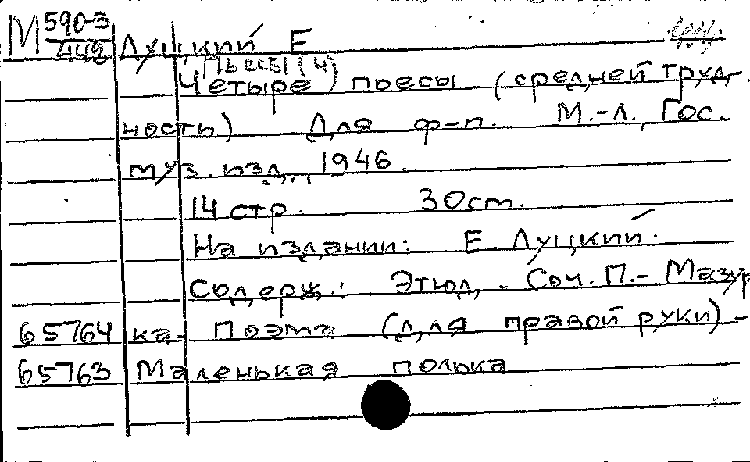 М 590-3
448 Луцкий Е
Пьесы (4)
Четыре поесы (средней труд-
ность) Для ф-п. М.-Л., Гос.
муз. изд., 1946.
14 стр. 30 ст.
На издании: Е. Луцкий.
Содерж.: Этюд, Соч. П. - Мазур
65764 ка- Поэма (для правой руки) -
65763 Маленькая полька